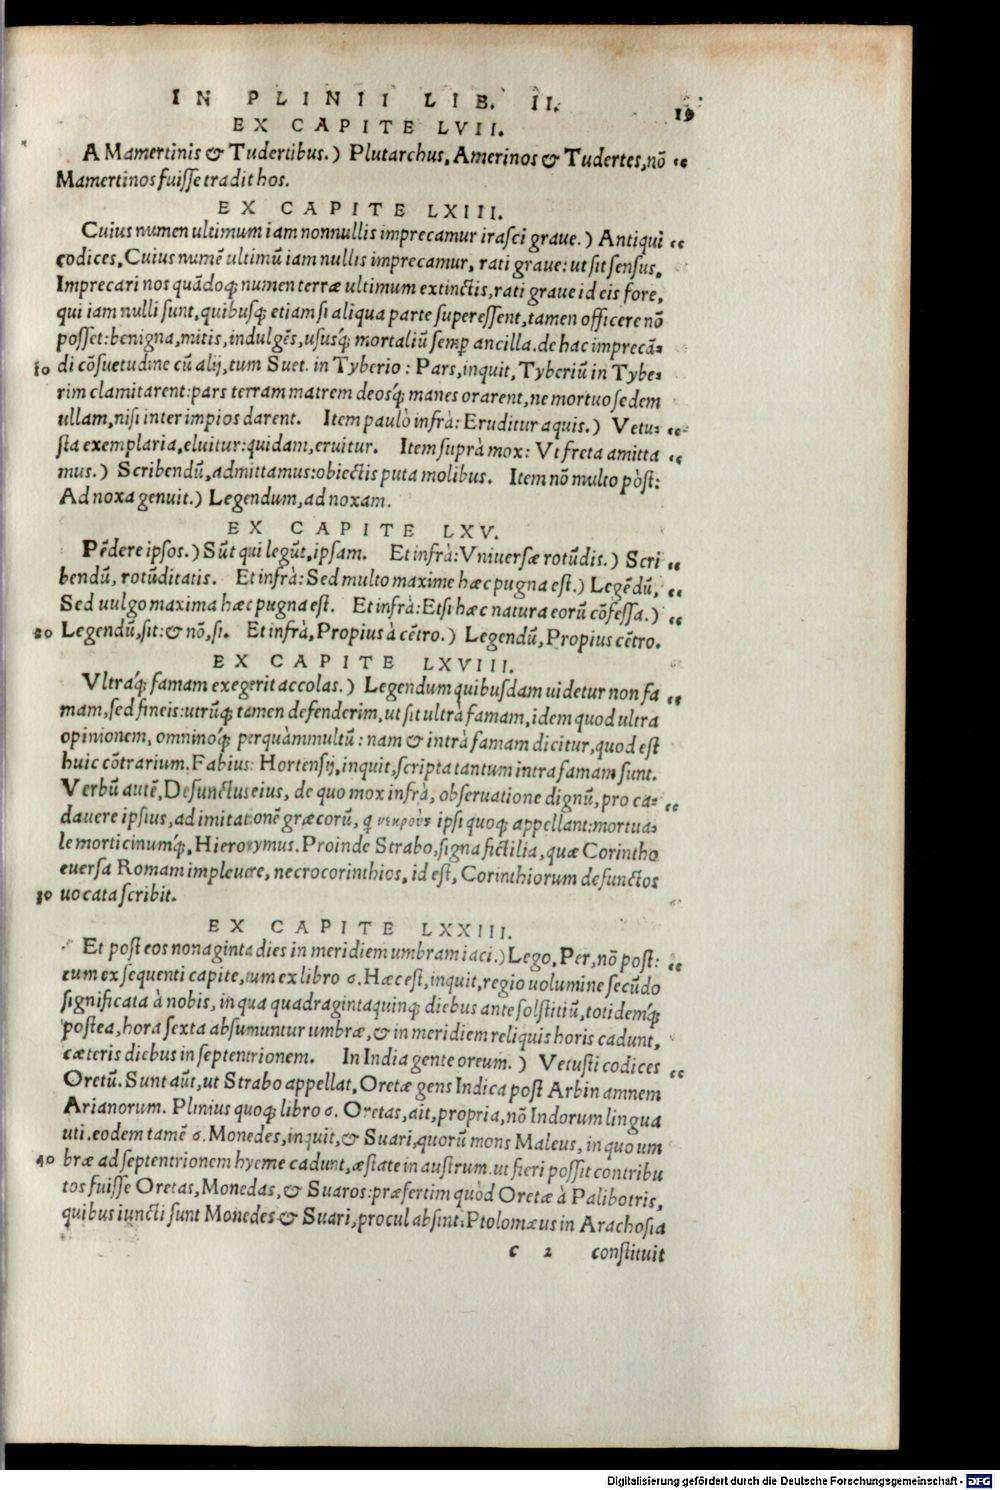 IN PLINII LIB. II. 19
EX CAPITE LVII.
A Mamertinis & Tudertibus.) Plutarchus, Amerinos & Tudertes, nō “
Mamertinos fuiſſe tradit hos.
EX CAPITE LXIII.
Cuius numen ultimum iam nonnullis imprecamur iraſci graue.) Antiqui “
codices, Cuius numē ultimū iam nullis imprecamur, rati graue: ut ſit ſenſus,
Imprecari nos quādoq; numen terræ ultimum extinctis, rati graue id eis fore,
qui iam nulli ſunt, quibuſq; etiam ſi aliqua parte ſupereſſent, tamen officere nō
poſſet: benigna, mitis, indulgēs, uſusq́; mortaliū ſemꝑ ancilla. de hac imprecā⸗
10 di cōſuetudine cū alij, tum Suet. in Tyberio: Pars, inquit, Tyberiū in Tybe⸗
rim clamitarent: pars terram matrem deosq́; manes orarent, ne mortuo ſedem
ullam, niſi inter impios darent. Item paulò infrà: Eruditur aquis.) Vetu⸗ “
ſta exemplaria, eluitur: quidam, eruitur. Item ſuprà mox: Vt freta amitta “
mus.) Scribendū, admittamus: obiectis puta molibus. Item nō multo pòſt:
Ad noxa genuit.) Legendum, ad noxam.
EX CAPITE LXV.
Pēdere ipſos.) Sūt qui legūt, ipſam. Et infrà: Vniuerſæ rotūdis.) Scri “
bendū, rotūditatis. Et infrà: Sed multo maxime hæc pugna eſt.) Legēdū, “
Sed uulgo maxima hæc pugna eſt. Et infrà: Etſi hæc natura eorū cōfeſſa.) “
20 Legendū, ſit: & nō, ſi. Et infrà, Propius à cētro.) Legendū, Propius cētro.
EX CAPITE LXVIII.
Vltraq́; famam exegerit accolas.) Legendum quibuſdam uidetur non fa “
mam, ſed fineis: utrūq; tamen defenderim, ut ſit ultrà famam, idem quod ultra
opinionem, omninoq́; perquàm multū: nam & intrà famam dicitur, quod eſt
huic cōtrarium. Fabius: Hortenſij, inquit, ſcripta tantum intra famam ſunt.
Verbū autē, Defunctus eius, de quo mox infrà, obſeruatione dignū, pro ca⸗ “
dauere ipſius, ad imitationē græcorū, ꝗ νεκροὺς ipſi quoq; appellant: mortua⸗
le morticinumq́;, Hieronymus. Proinde Strabo, ſigna fictilia, quæ Corintho
euerſa Romam impleuere, necrocorinthios, id eſt, Corinthiorum defunctos
30 uocata ſcribit.
EX CAPITE LXXIII.
Et poſt eos nonaginta dies in meridiem umbram iaci.) Lego, Per, nō poſt: “
cum ex ſequenti capite, tum ex libro 6. Hæc eſt, inquit, regio uolumine ſecūdo
ſignificata à nobis, in qua quadragintaquinq; diebus ante ſolſtitiū, totidemq́;
poſtea, hora ſexta abſumuntur umbræ, & in meridiem reliquis horis cadunt,
cæteris diebus in ſeptentrionem. In India gente oreum.) Vetuſti codices “
Oretū. Sunt aūt, ut Strabo appellat, Oretæ gens Indica poſt Arbin amnem
Arianorum. Plinius quoq; libro 6. Oretas, ait, propria, nō Indorum lingua
uti. eodem tamē 6. Monedes, inquit, & Suari, quorū mons Maleus, in quo um
40 bræ ad ſeptentrionem hyeme cadunt, æſtate in auſtrum. ut fieri poſſit contribu
tos fuiſſe Oretas, Monedas, & Suaros: præſertim quòd Oretæ à Palibotris,
quibus iuncti ſunt Monedes & Suari, procul abſint. Ptolomæus in Arachoſia
c 2 conſtituit
Digitalisierung gefördert durch die Deutsche Forschungsgemeinschaft - DFG